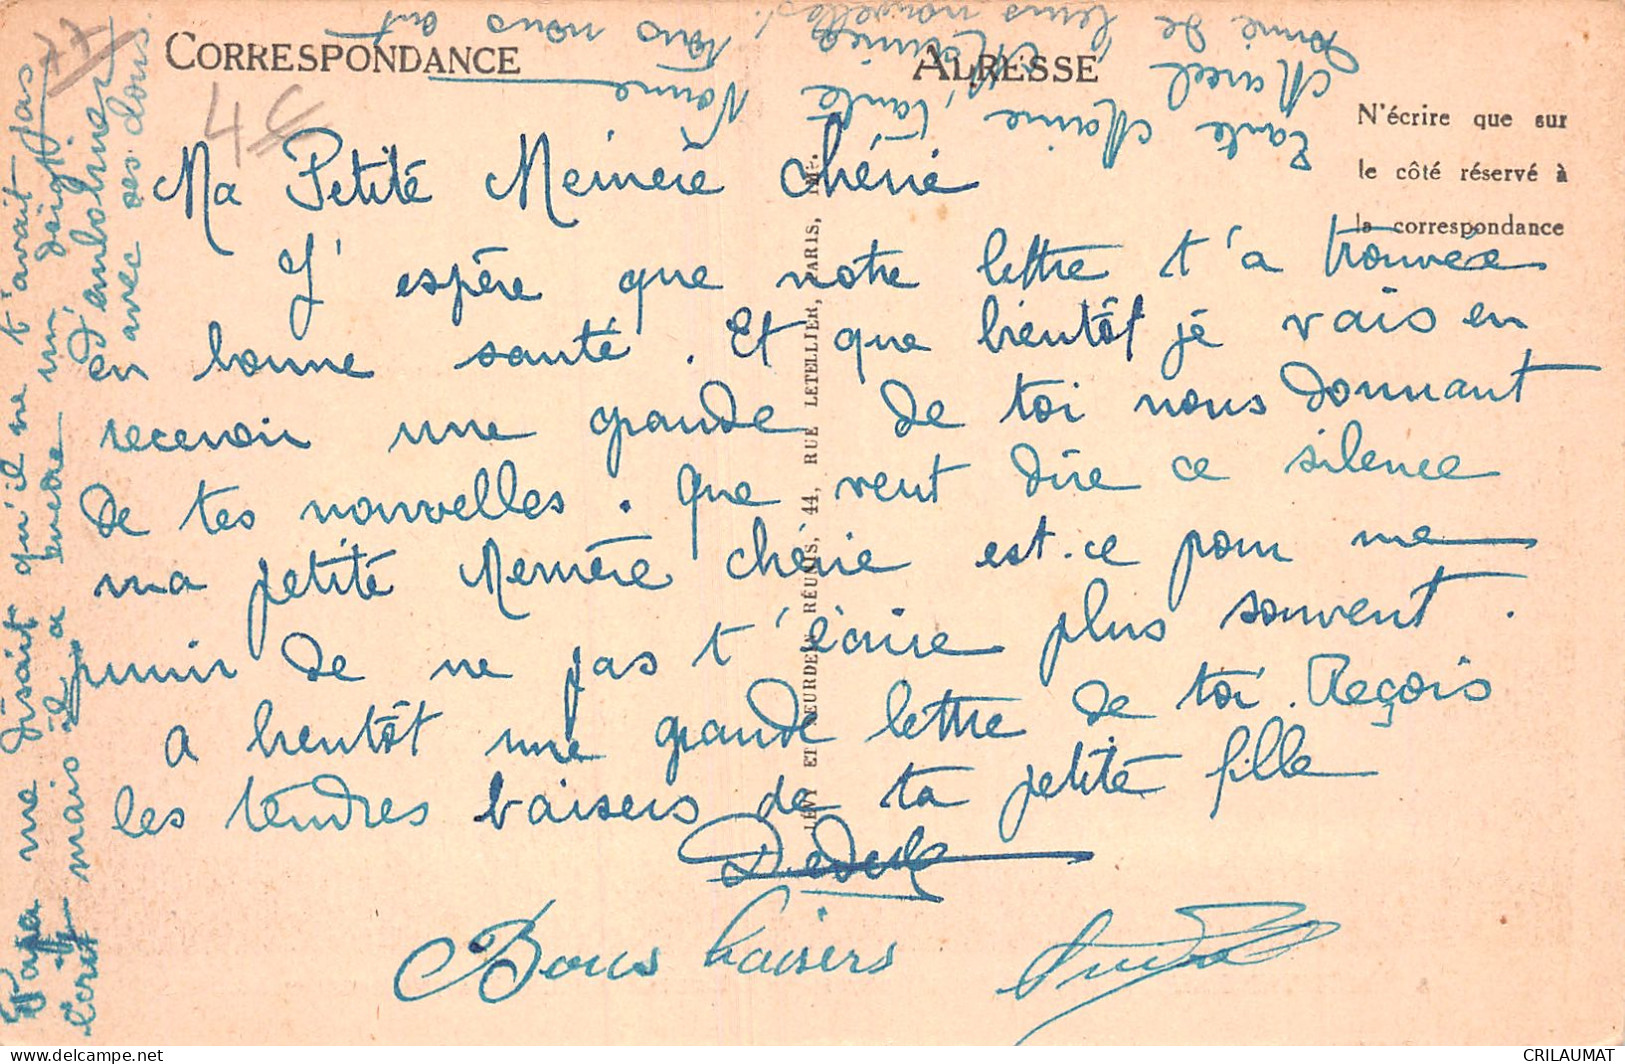 CORRESPONDANCE
ADRESSE
N'écrire que sur
le côté réservé à
la correspondance
Ma Petite Mémère Chérie
J'espère que notre lettre t'a trouvée
en bonne santé. Et que bientôt je vais en
recevoir une grande de toi nous donnant
de tes nouvelles. Que veut dire ce silence
ma petite Mémère chérie est-ce pour me
punir de ne pas t'écrire plus souvent.
A bientôt une grande lettre de toi. Reçois
les tendres baisers de ta petite fille
Bons baisers
Papa me disait qu'il ne t'avait pas
écrit mais il a encore un doigt
avec ses dous
Tante Marie, Tante
Marcel
Nonne
donné de leurs nouvelles.
tous nous ont
LÉVY ET NEURDEIN RÉUNIS, 44, RUE LETELLIER, PARIS, IMP.
4 €
CRILAUMAT